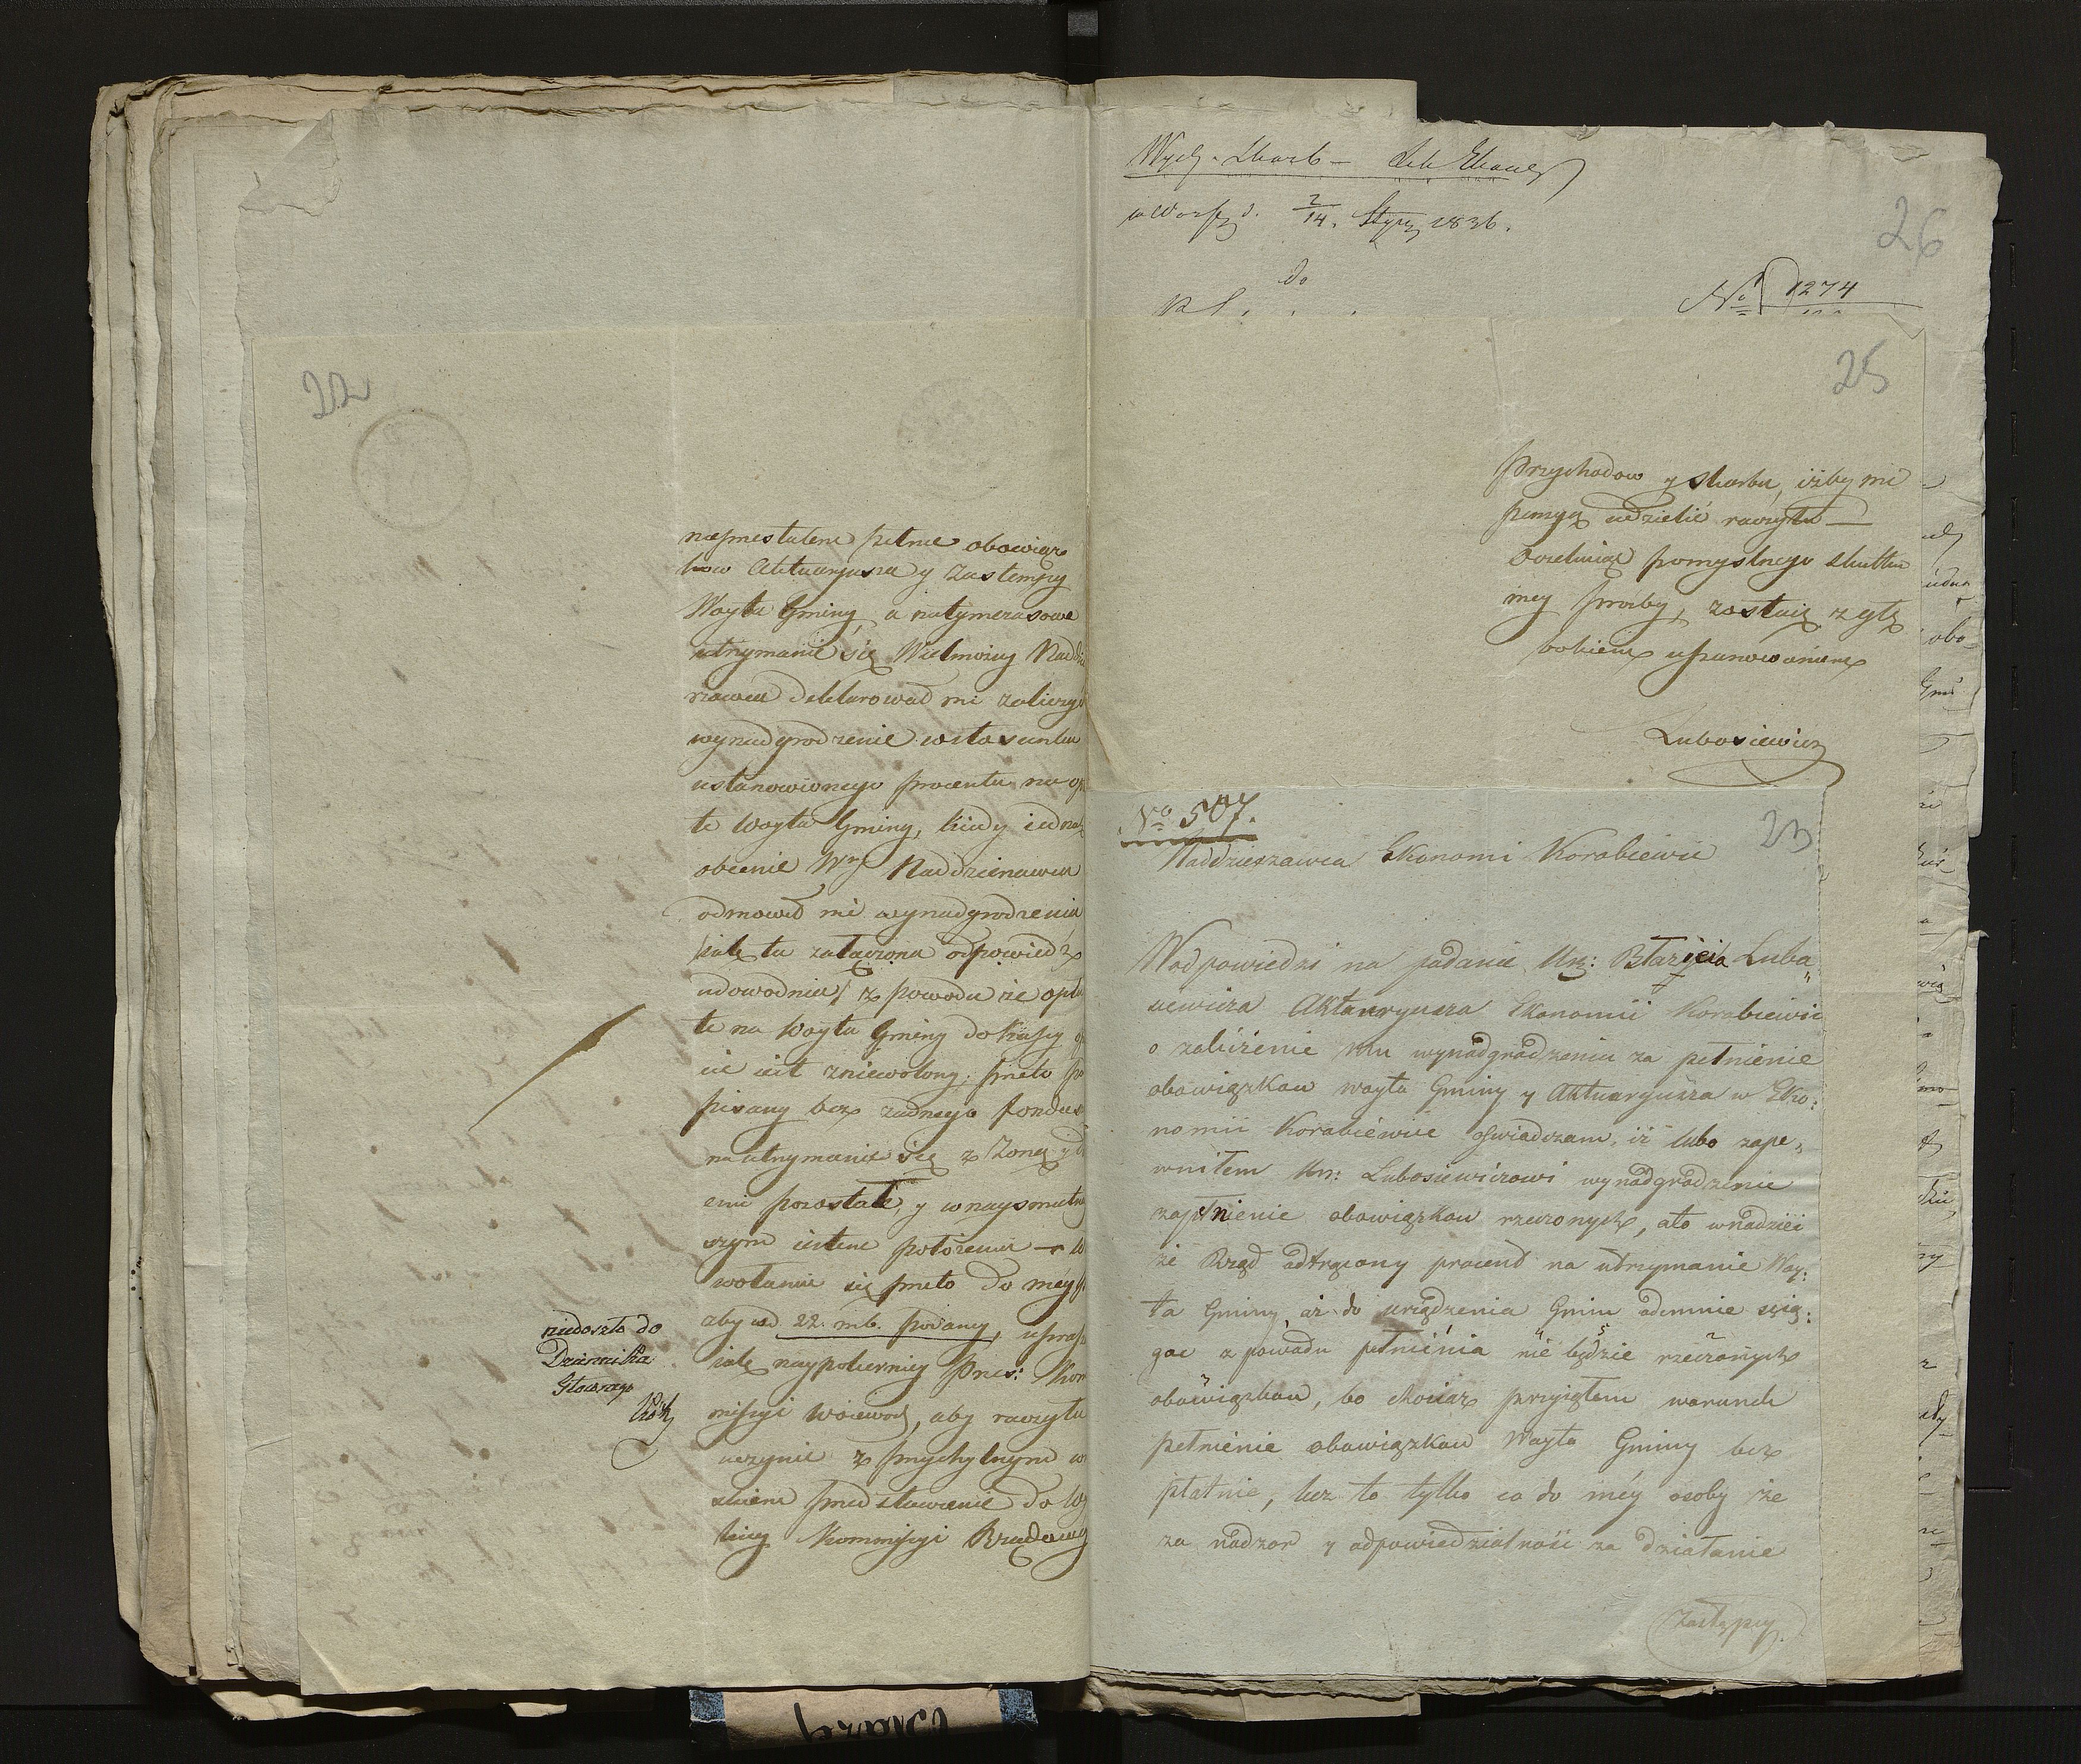 22
nieprzestałem pełnić obowiąz
kow Aktuaryusza y Zastempcy
Woyta Gminy, a natymczasowe
utrzymanie się Wielmożny Naddzie
rzawca deklarował mi zaliczyć
wynadgrodzenie wstosunku
ustanowionego procentu na op
te Woyta Gminy, kiedy iednak
obecnie Wny Naddzierzawca
odmowił mi wynadgrodzenia
iak tu załączona odpowiedź
udowodnia z powodu że opła
te na Woyta Gminy do kassy
ie iest zniewolony; przeto
pisany bez żadnego fondus
na utrzymanie się z Żoną y
emi pozostałe, y w naysmutn
szym iestem położeniu — 
wołanie się przeto do mey
aby ad 22. mb. podaney, uprasz
iak naypokorniey Prześ: Kom
missyi Woiewodz, aby raczyła
uczynić z przychylnym w
skiem przedstawienie do Wy
kiey Kommissyi Rządowey
niedoszło do
Dziennika
Głownego
Wydz. Skarb —
w Warsz d. 2/14. Stycz 1836.
do
26
No 1274
25
Przychodow y skarbu, iżby mi
pomoc udzielić raczyła —
Oczekuiąc pomyslnego skutku
mey prozby, zostaię z głę
bokiem uszanowaniem
Lubosiewicz
No 507.
23
Naddzierzawca Ekonomi Korabiewice
W odpowiedzi na podanie Ur: Błażeia Lubo
siewicza Aktuaryusza Ekonomii Korabiewic
o zaliczenie Mu wynadgradzaniu za pełnienie
obowiązkow woyta Gminy y Aktuaryusza w Eko:
nomii Korabiewice oswiadczam, iż lubo zape,
wniłem Ur: Lubosiewiczowi wynadgradzenie
zapełnienie obowiązkow rzeczonych, ato wnadziei
że Rząd odtrącony procent na utrzymanie Woy:
ta Gminy, aż do urządzenia Gmin odemnie scią:
gac z powodu pełnienia nie będzie rzeczonych
obowiązkow, bo chociaz przyiąłem warunek
pełnienie obowiązkow Woyta Gminy bez
płatnie, lecz to tylko co do mey osoby że
za nadzor y odpowiedzialność za działanie
zastępcy.